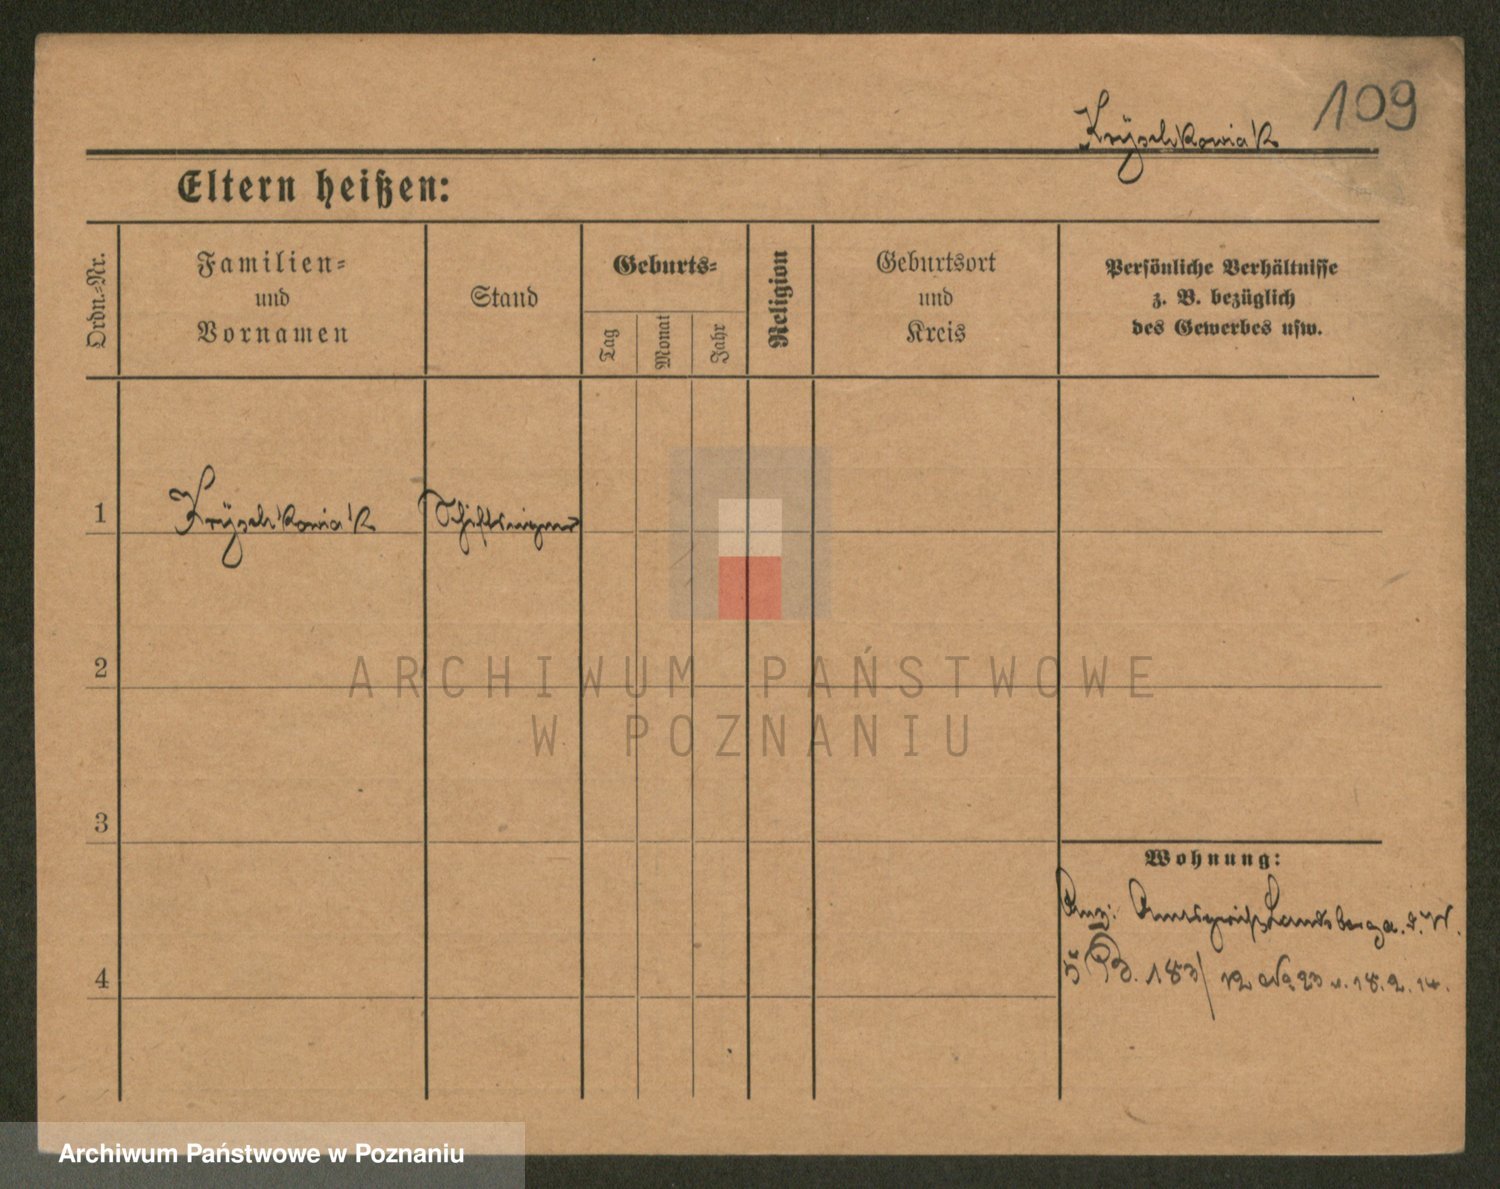 109
Krÿschkowiak
Eltern heißen:
Ordn.-Nr.
Familien-
und
Vornamen
Stand
Geburts-
Tag
Monat
Jahr
Religion
Geburtsort
und
Kreis
Persönliche Verhältnisse
z. B. bezüglich
des Gewerbes usw.
1
Krÿschkowiak
Schiffseigner
2
ARCHIWUM PAŃSTWOWE
W POZNANIU
3
Wohnung:
Anz. Amtsgericht Landsberg a. d. W.
5 B. 183/12 No 23 v. 18. 2. 14.
4
Archiwum Państwowe w Poznaniu